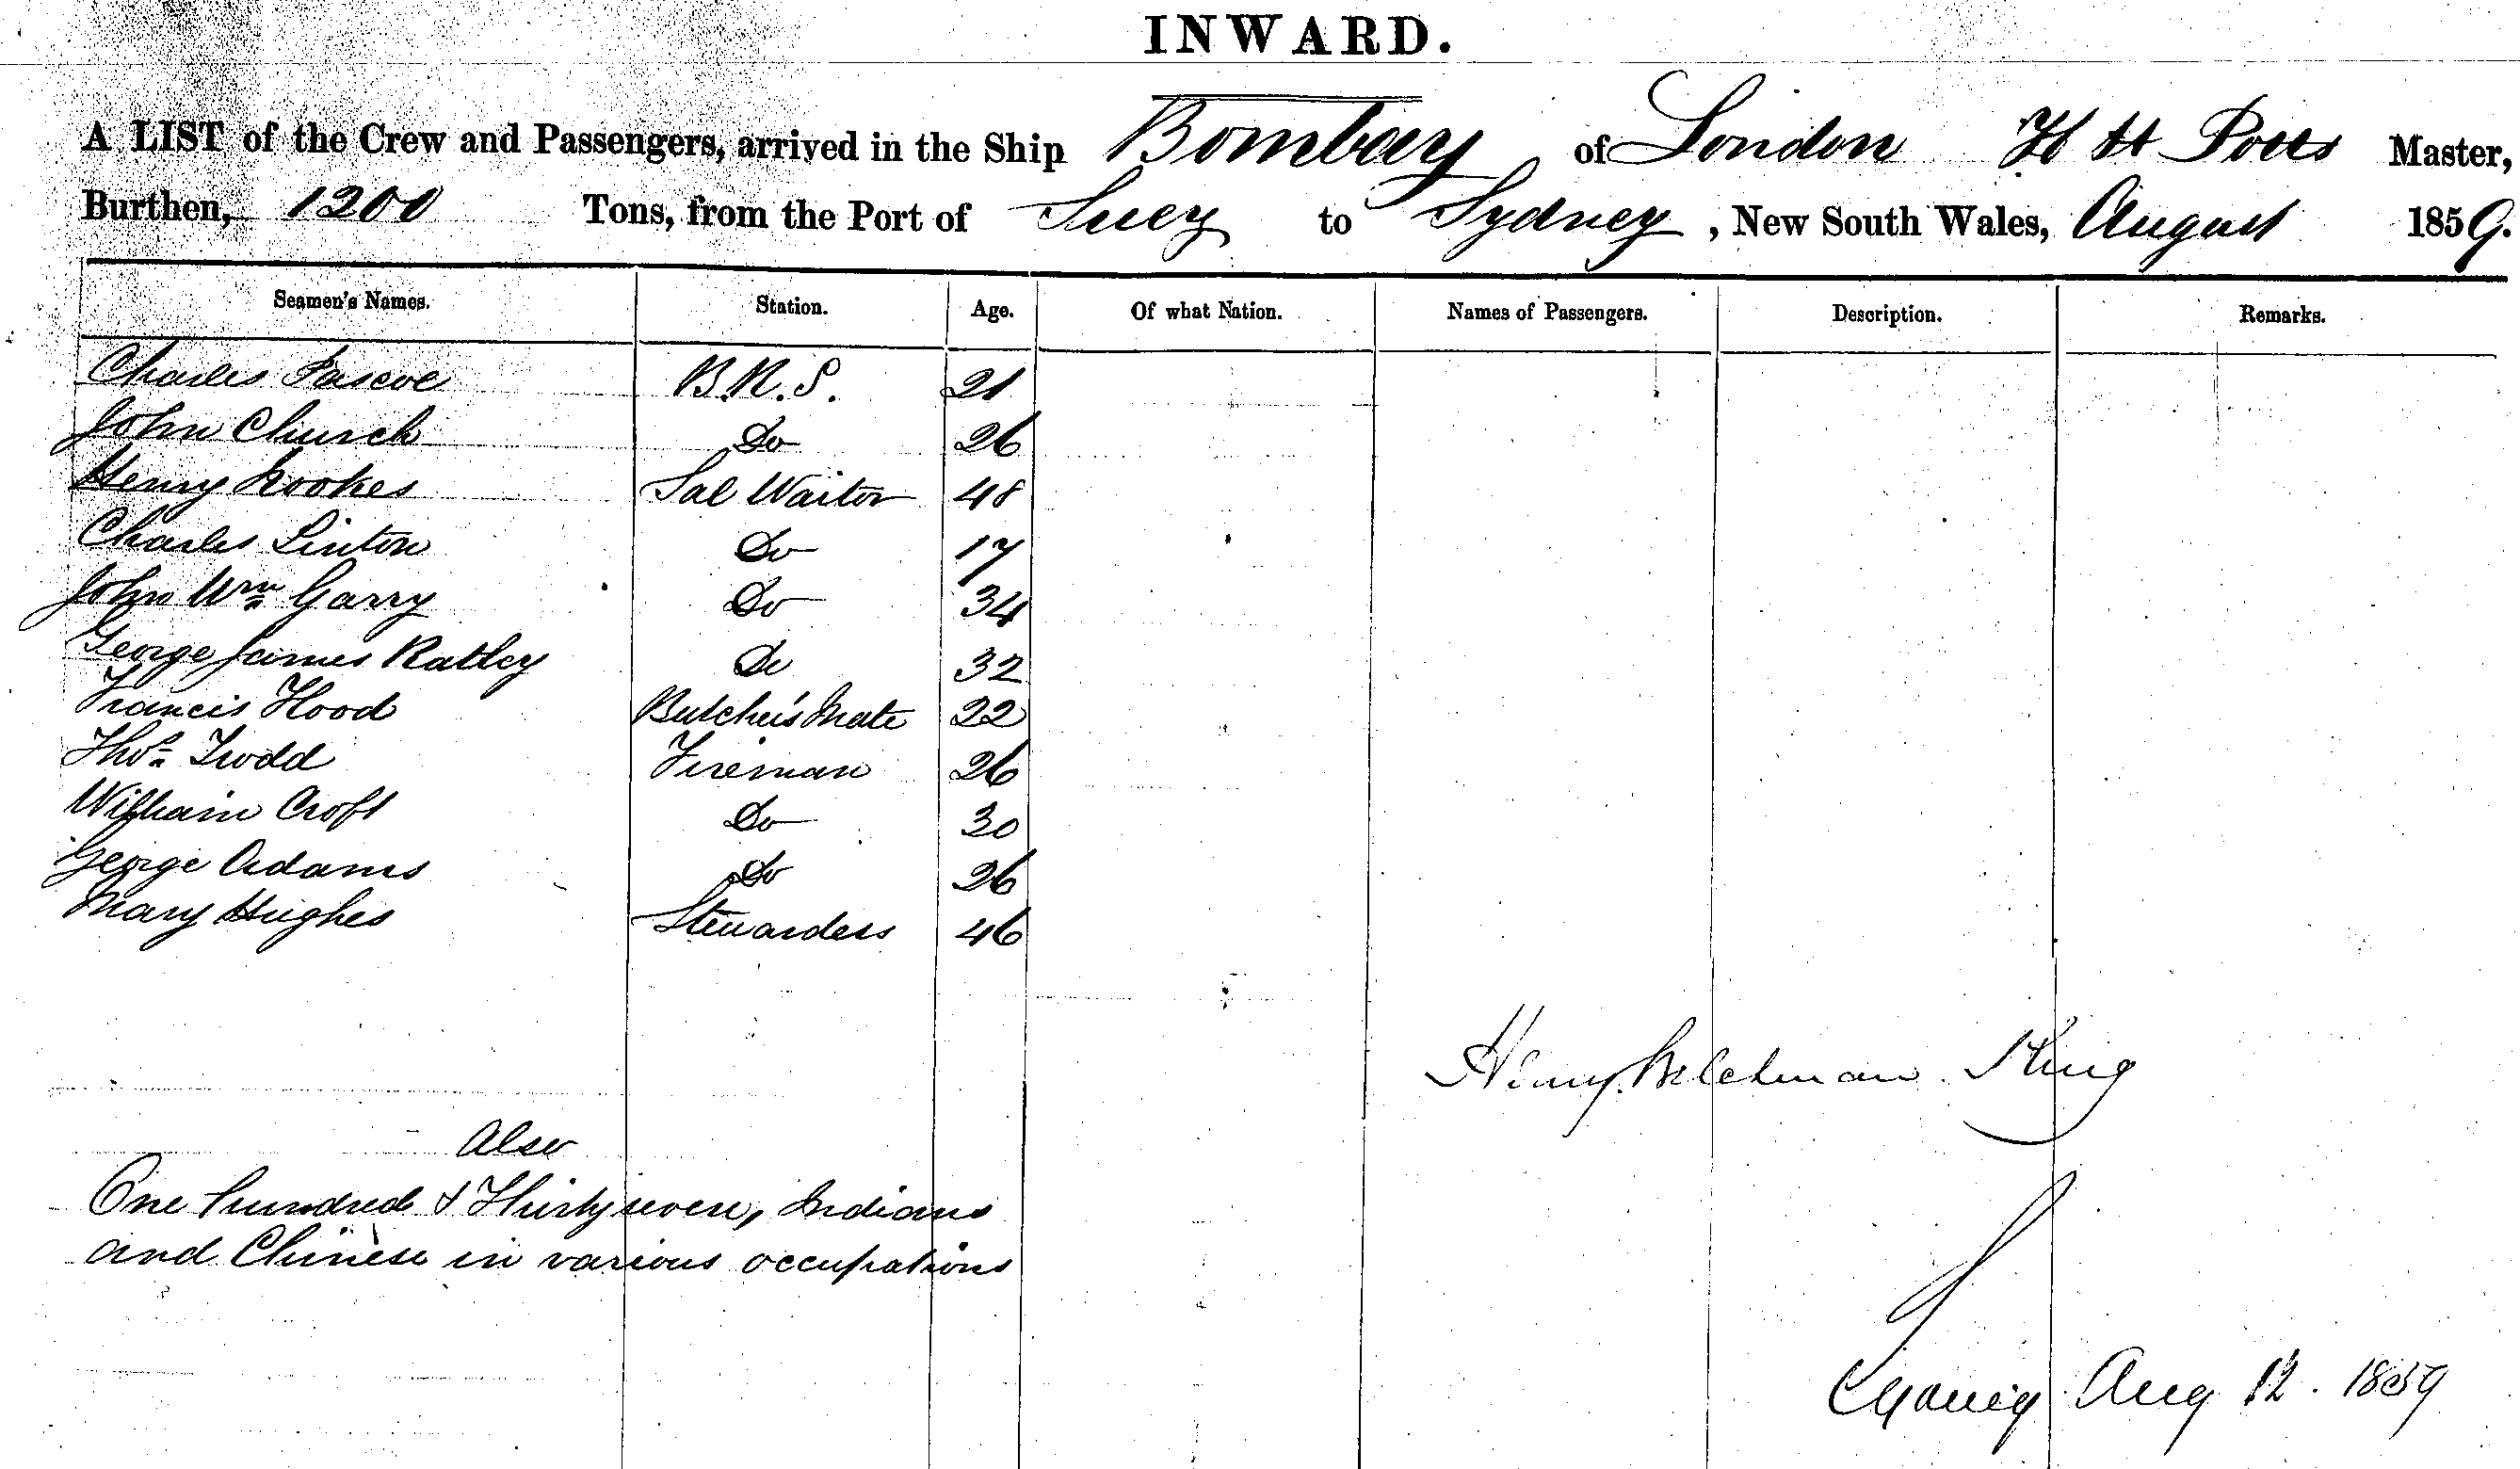 INWARD.
A LIST of the Crew and Passengers, arrived in the Ship Bombay of London H H Potts Master,
Burthen, 1200 Tons, from the Port of Suez to Sydney, New South Wales, August 1859.
Seamen's Names. Station. Age. Of what Nation. Names of Passengers. Description. Remarks.
Charles Pascoe B.R.S. 21
John Church Do 26
Henry Hookes Sal Waiter 48
Charles Linton Do 17
John Wm Garry Do 34
George James Ratley Do 32
Francis Hood Butcher's Mate 22
Thos Todd Fireman 26
William Croft Do 30
George Adams Do 26
Mary Hughes Stewardess 46
Henry King
Also
One hundred & Thirty seven, Indians
and Chinese in various occupations
Aug 12. 1859